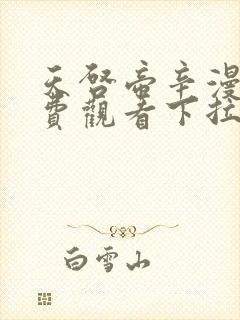 天啓帝辛漫
費觀看下拉
白雪山